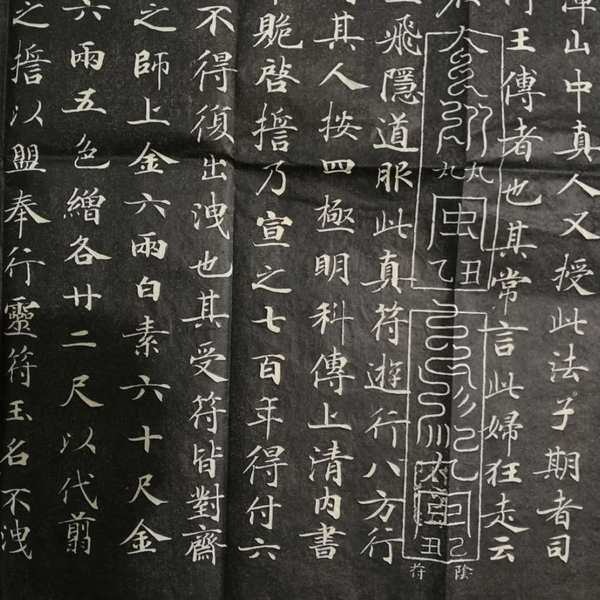 山中真人又授此法子期者司
行王傳者也其常言此婦狂走云
陰
符
飛隱道服此真符遊行八方行
其人按四極明科傳上清內書
貺啓㨪乃宣之七百年得付六
不得復出洩也其受符皆對齋
之師上金六兩白素六十尺金
六兩五色繒各廿二尺以代翦
之㨪以盟奉行靈符玉名不洩